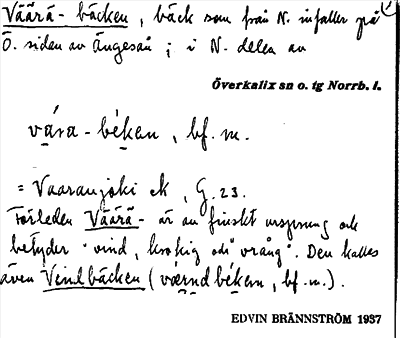 Väärä-bäcken, bäck som från N. infaller på
Ö. sidan av Ängesån; i N. delen av
Överkalix sn o. tg Norrb. l.
vára-béken, bf. m.
= Vaaranjoki ek, G. 23.
Förleden Väärä- är av finskt ursprung och
betyder "vind, krokig och vrång". Den kallas
även Vendbäcken (værnd béken, bf. m.).
EDVIN BRÄNNSTRÖM 1937